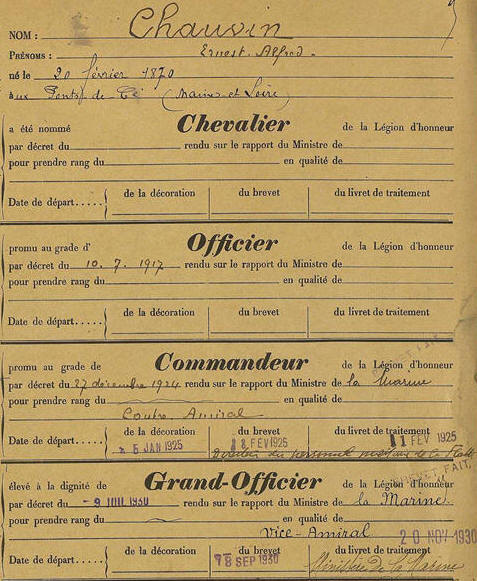 NOM : Chauvin
PRÉNOMS : Ernest Alfred
né le 20 février 1870
aux Ponts de Cé (Maine et Loire)
a été nommé Chevalier de la Légion d'honneur
par décret du rendu sur le rapport du Ministre de
pour prendre rang du en qualité de
de la décoration du brevet du livret de traitement
Date de départ.....
promu au grade d' Officier de la Légion d'honneur
par décret du 10.7.1917 rendu sur le rapport du Ministre de
pour prendre rang du en qualité de
de la décoration du brevet du livret de traitement
Date de départ.....
promu au grade de Commandeur de la Légion d'honneur
par décret du 27 décembre 1924 rendu sur le rapport du Ministre de la Marine
pour prendre rang du en qualité de
Contre Amiral
de la décoration du brevet du livret de traitement
Date de départ..... 5 JAN 1925 FEV 1925 11 FEV 1925
Direction du personnel militaire de la Flotte
BREVET FAIT,
élevé à la dignité de Grand-Officier de la Légion d'honneur
par décret du 1930 rendu sur le rapport du Ministre de la Marine
pour prendre rang du en qualité de
Vice-Amiral 20 NOV 1930
de la décoration du brevet du livret de traitement
Date de départ..... SEP 1930 Ministère de la Marine